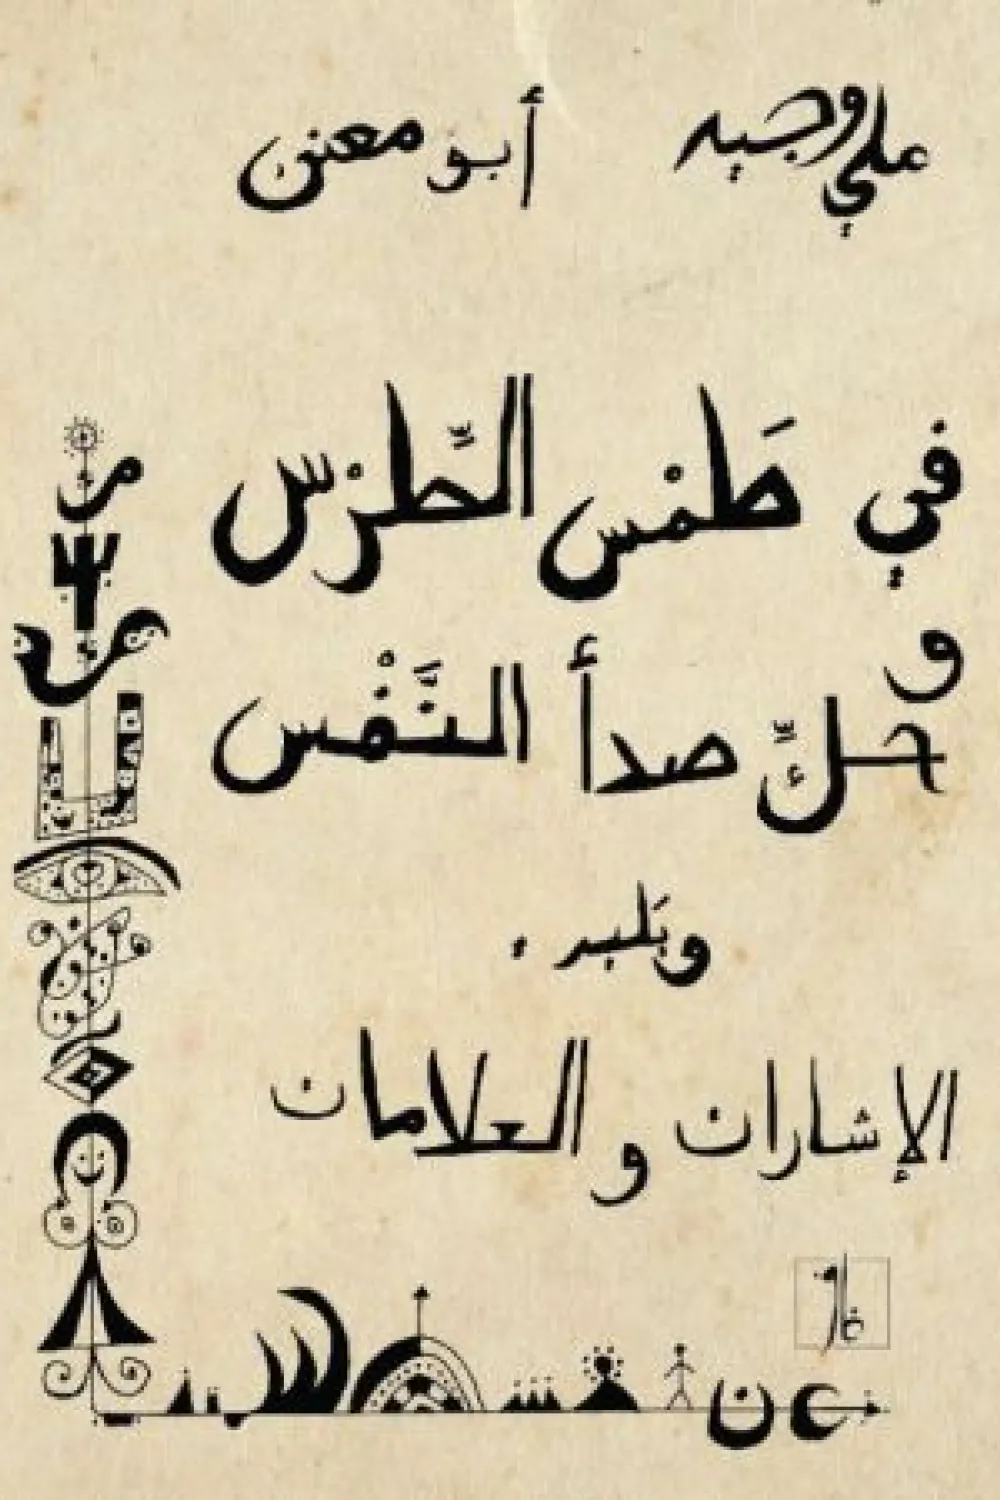 علي وجيه أبو معنى
في طَمْس الطِّرْس
و
حكِّ صدأ النَّفْس
ويَليه .
الإشارات و العلامات